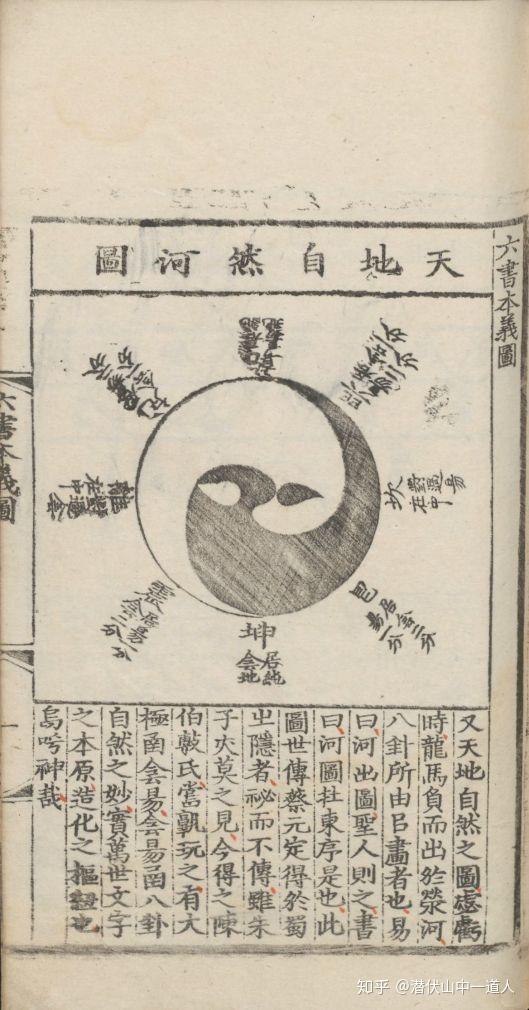 六書本義圖
天地自然河圖
坎
對過昜
在中
離
對過侌
在中
震
居昜一分
侌二分
坤
居純
侌地
又天地自然之圖虙戲
時龍馬負而出於滎河
八卦所由㠯畫者也易
曰河出圖聖人則之書
曰河圖在東序是也此
圖世傳蔡元定得於蜀
㞢隱者祕而不傳雖朱
子亦莫之見今得之陳
伯敷氏嘗翫玩之有大
極函侌昜侌昜函八卦
自然之妙實萬世文字
之本原造化之樞紐也
烏呼神哉
六書本義圖
知乎 @潜伏山中一道人